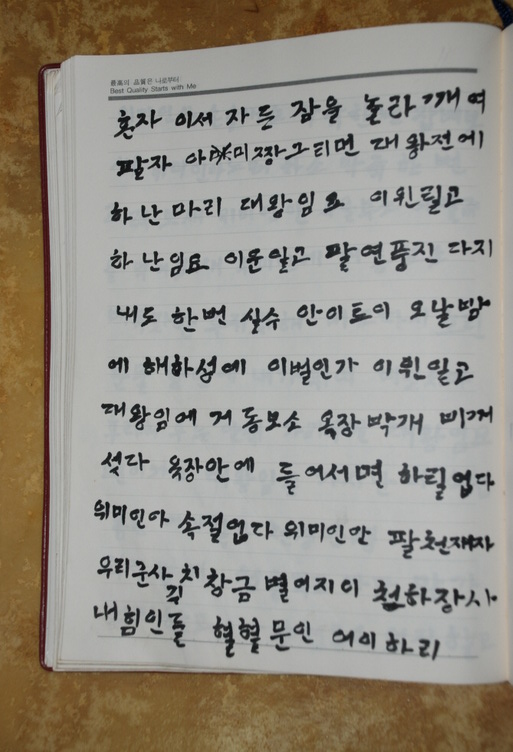 最高의 品質은 나로부터
Best Quality Starts with Me
혼자 이서 자든 잠을 놀라 깨여
팔자 아 미 짱그리면 대왕전에
하난마리 대왕임요 이윈릴고
하난임요 이윤일고 팔연풍진 다지
내도 한번 실수 안이토이 오날밤
에 해하성에 이벌인가 이뤈일고
대왕임에 거동보소 옥장박개 비껴
섯다 옥장안에 들어서면 하릴업다
위미인아 속절업다 위미인안 팔천재자
우리군사 치 황금 멸어지이 천하장사
긱
내힘인들 혈혈문인 어이하리